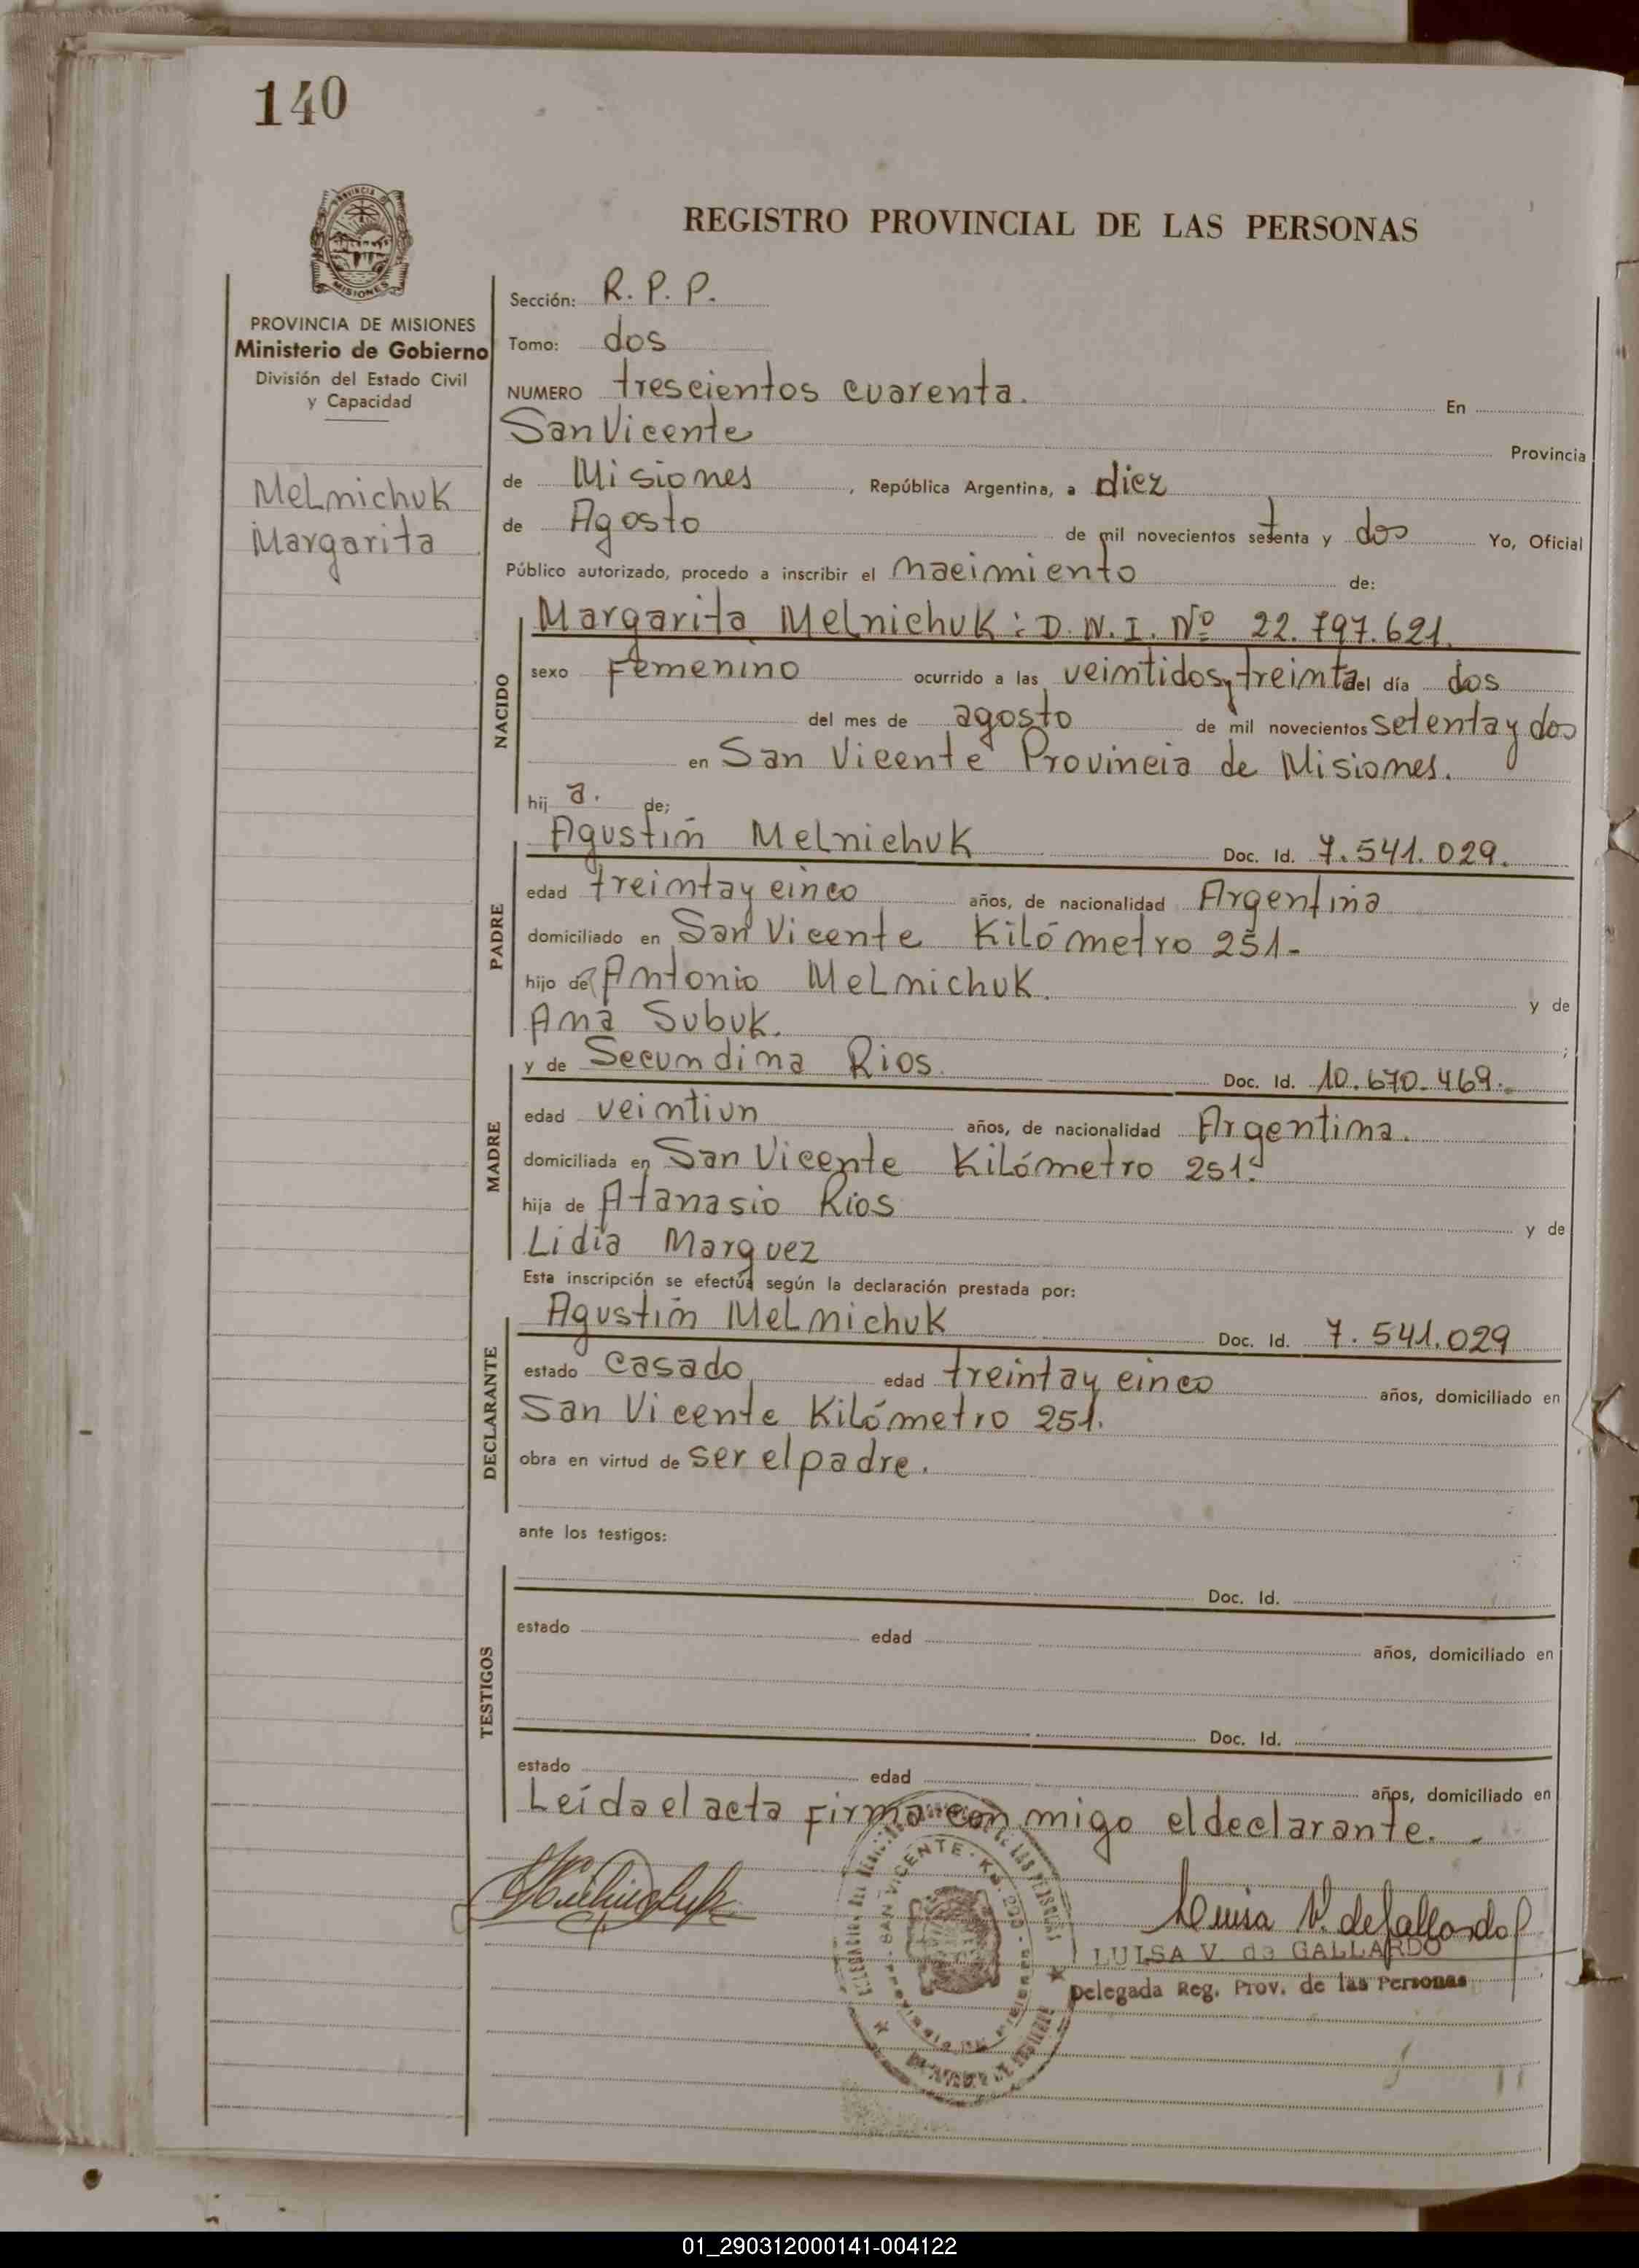 140
PROVINCIA
MISIONES
REGISTRO PROVINCIAL DE LAS PERSONAS
PROVINCIA DE MISIONES
Ministerio de Gobierno
División del Estado Civil
y Capacidad
Melnichuk
Margarita
Sección: R. P. P.
Tomo: dos
NUMERO trescientos cuarenta. En
San Vicente Provincia
de Misiones, República Argentina, a diez
de Agosto de mil novecientos setenta y dos Yo, Oficial
Público autorizado, procedo a inscribir el nacimiento de:
NACIDO
Margarita Melnichuk: D.N.I. Nº 22.797.621.
sexo Femenino ocurrido a las veintidos y treinta del día dos
del mes de agosto de mil novecientos setenta y dos
en San Vicente Provincia de Misiones.
hij a. de;
PADRE
Agustín Melnichuk Doc. Id. 7.541.029.
edad treinta y cinco años, de nacionalidad Argentina
domiciliado en San Vicente Kilómetro 251-
hijo de Antonio Melnichuk. y de
Ana Subuk. ;
MADRE
y de Secundina Rios. Doc. Id. 10.670.469.
edad veintiun años, de nacionalidad Argentina.
domiciliada en San Vicente Kilómetro 251.
hija de Atanasio Ríos y de
Lidia Marquez
Esta inscripción se efectúa según la declaración prestada por:
DECLARANTE
Agustín Melnichuk Doc. Id. 7.541.029
estado casado edad treinta y cinco años, domiciliado en
San Vicente Kilómetro 251.
obra en virtud de ser el padre.
ante los testigos:
TESTIGOS
Doc. Id.
estado edad años, domiciliado en
Doc. Id.
estado edad años, domiciliado en
Leída el acta firma conmigo el declarante.
SAN VICENTE
Luisa V. de Gallardo
LUISA V. de GALLARDO
Delegada Reg. Prov. de las Personas
01_290312000141-004122